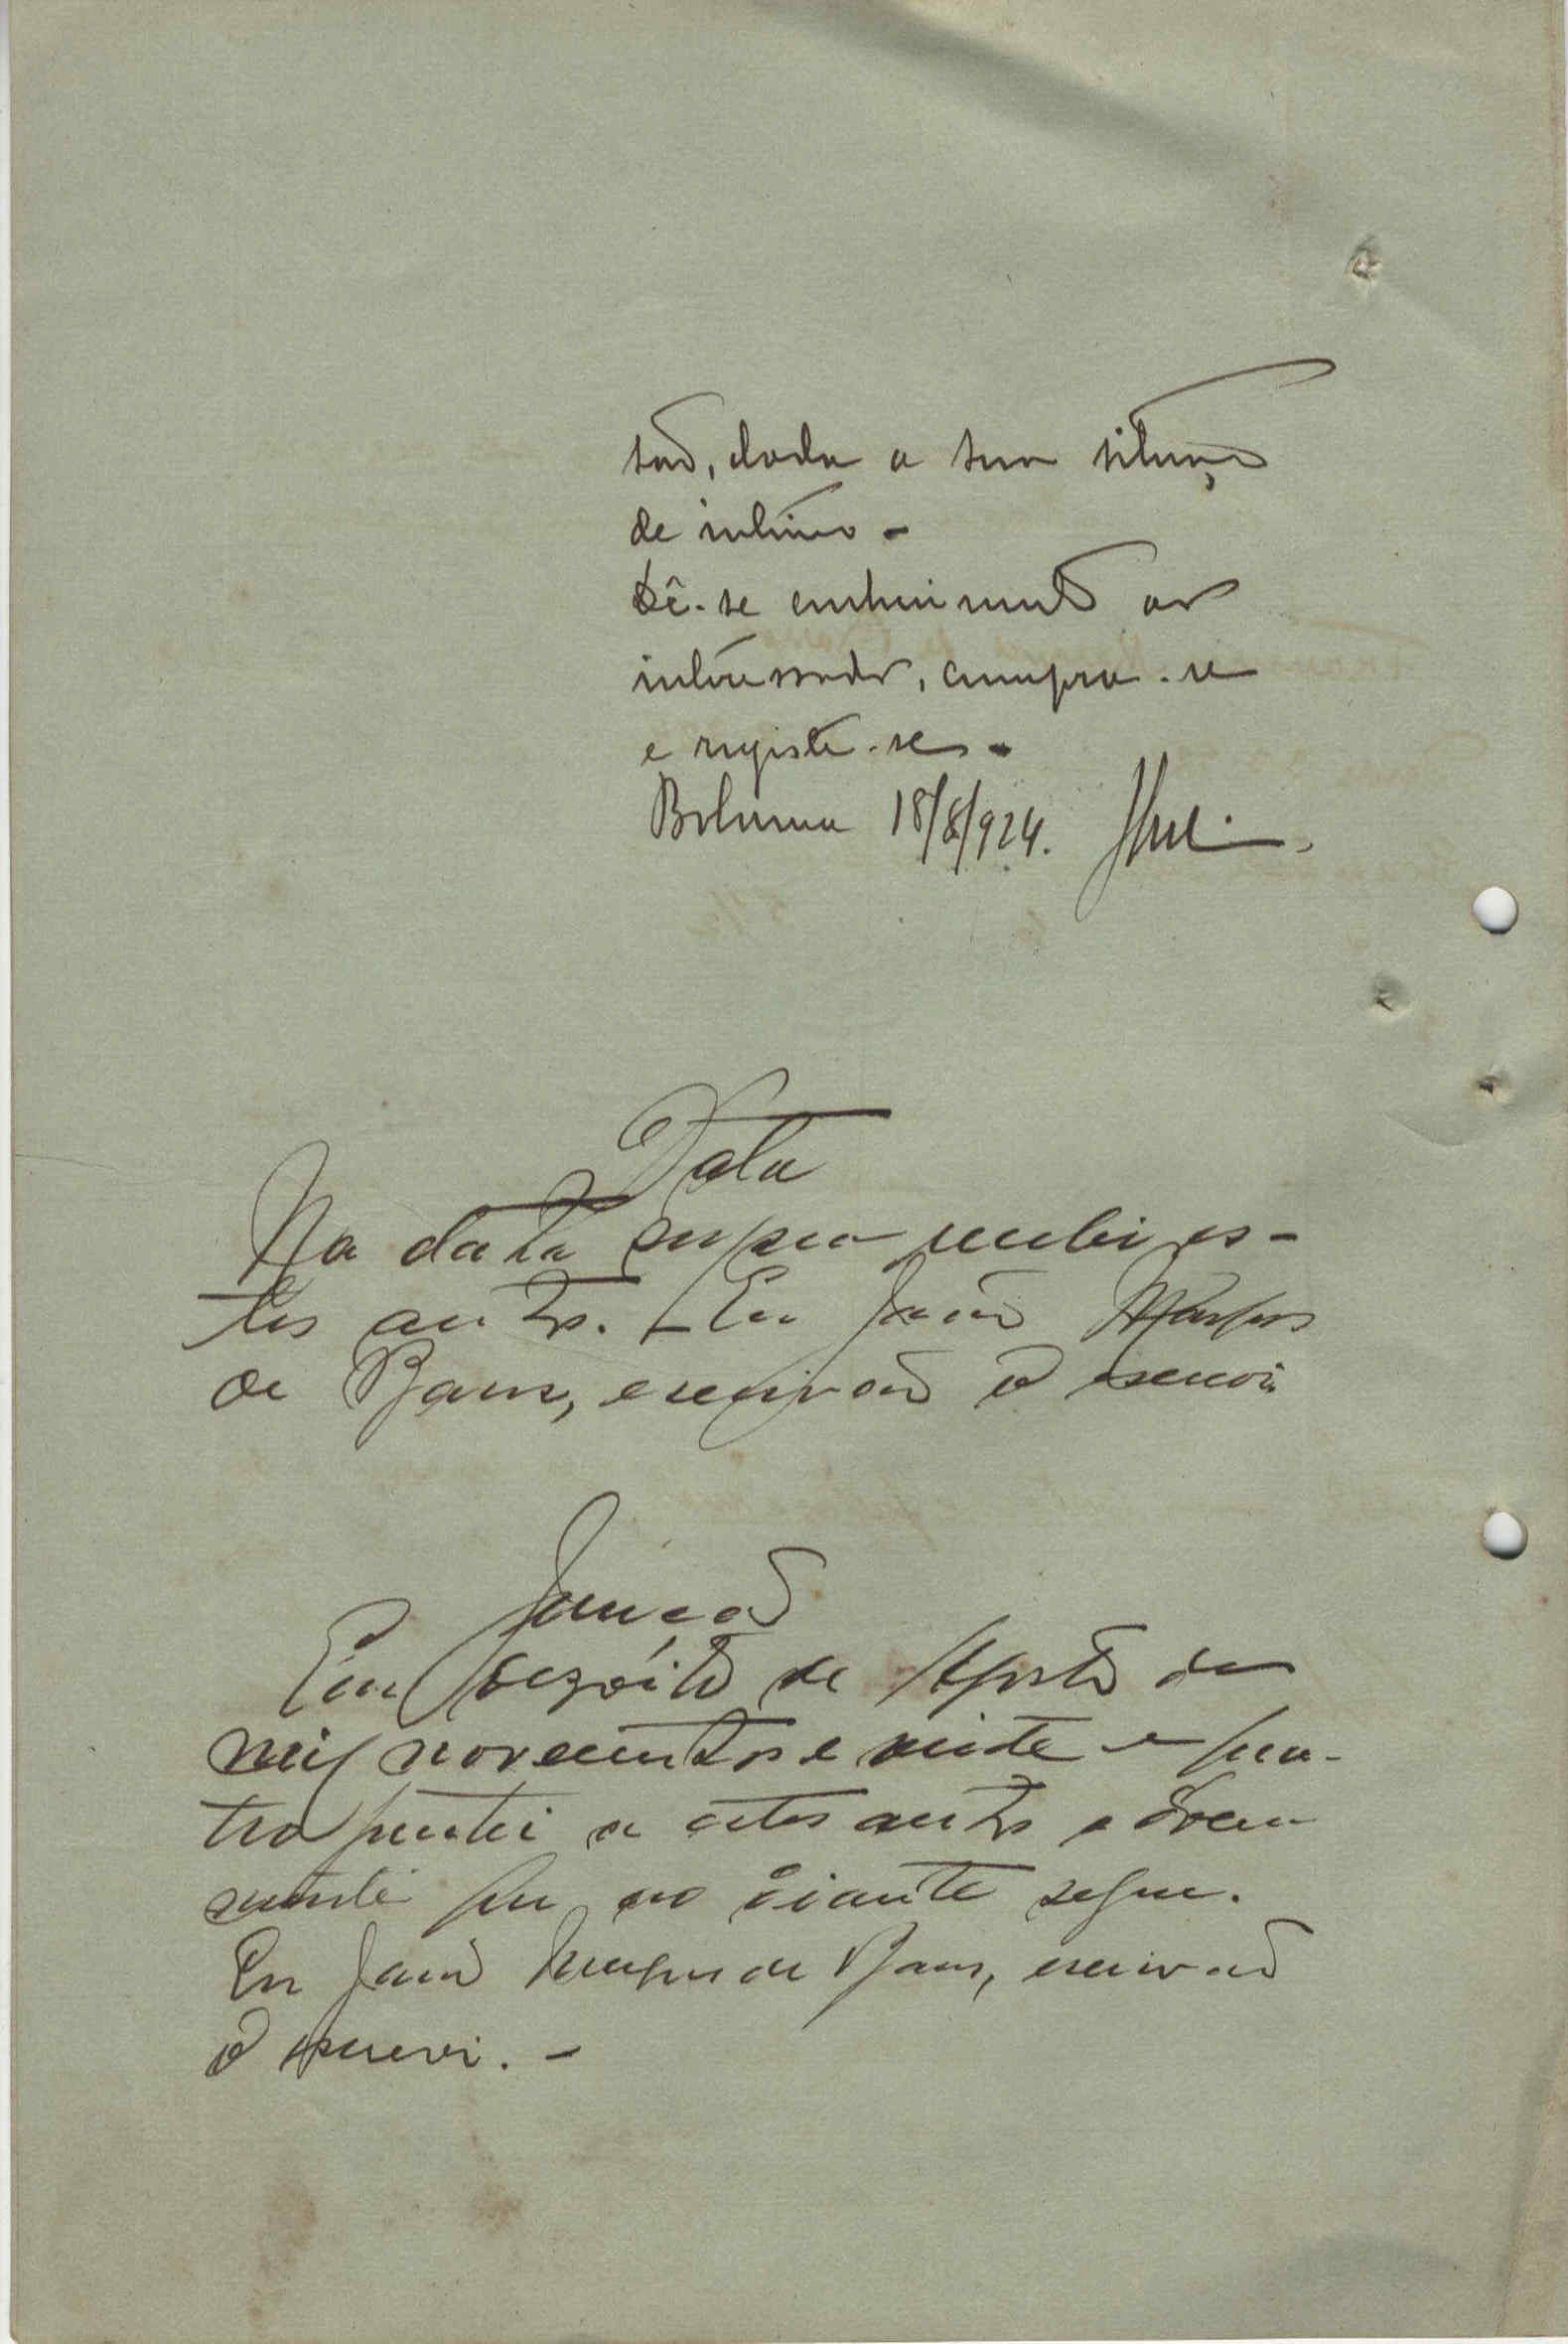 são, dada a sua situação
de interino -
Dê-se conhecimento aos
interessados, cumpra-se
e registe-se -
Bolama 18/8/924.
Data
Na data supra recebi es-
tes autos. - Eu João Marques
de Barros, escrivão o escrevi
Junção
Em dezóito de Agosto de
mil novecentos e vinte e qua-
tro juntei a estes autos o docu
mento que ao diante segue.
Eu João Marques de Barros, escrivão
o escrevi. -